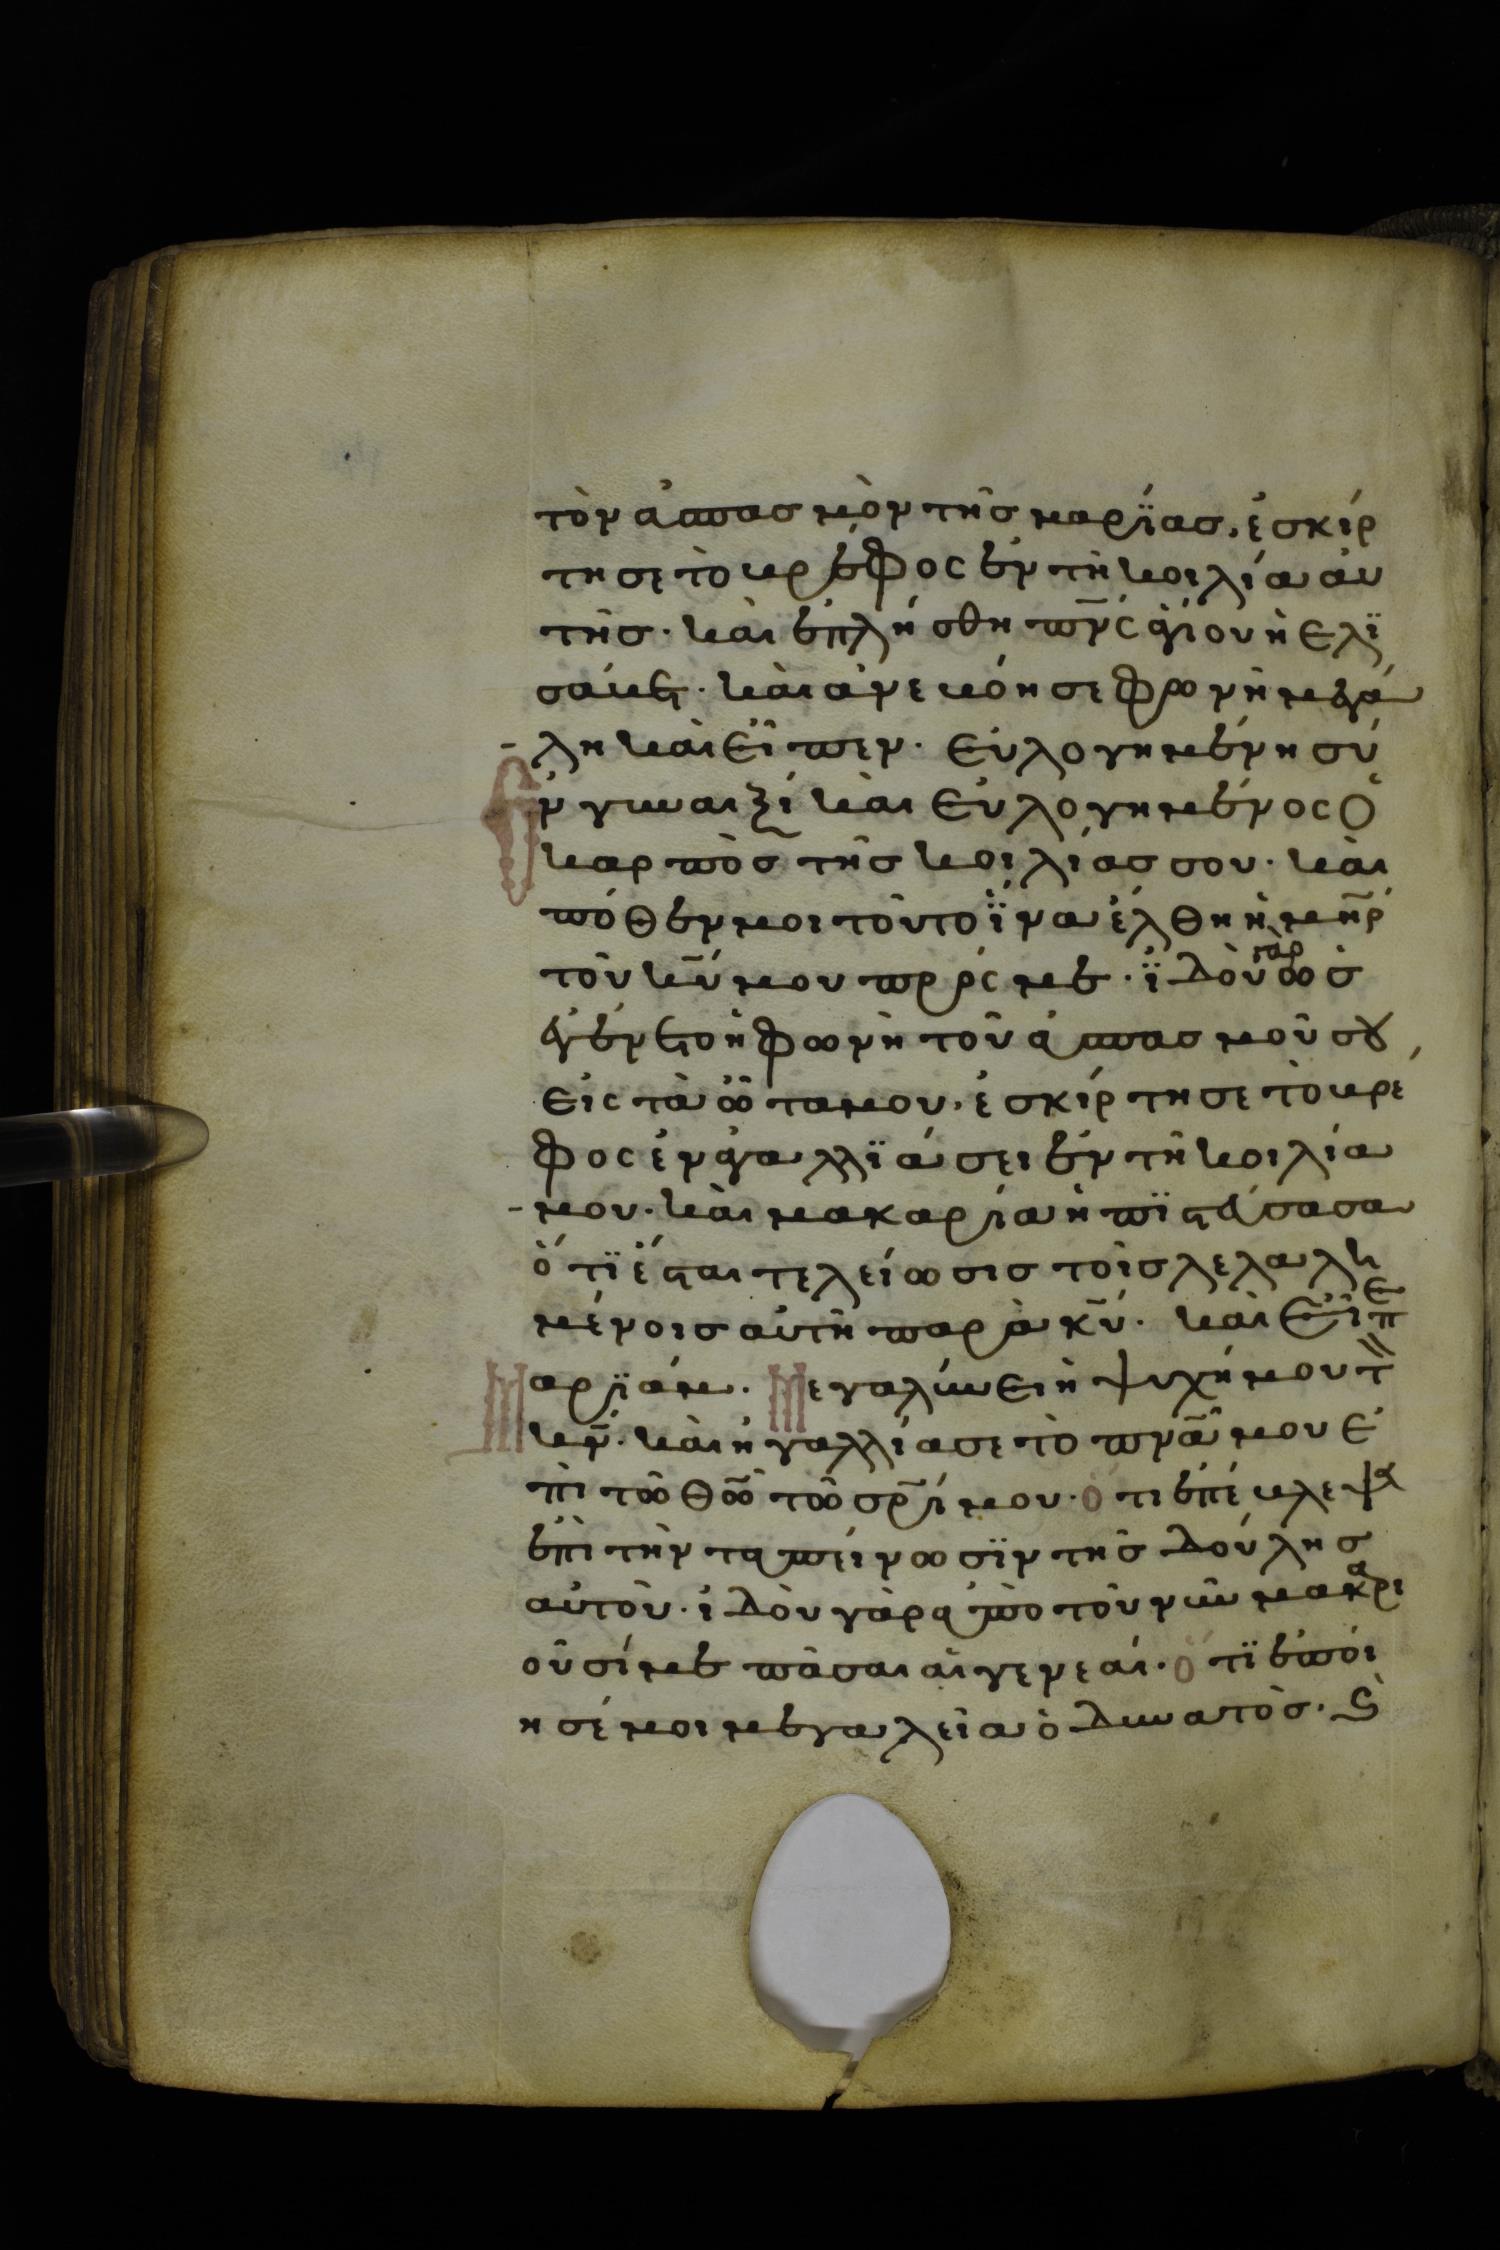 τὸν ἀσπασμὸν τῆς μαρΐας, ἐσκίρ
τησε τὸ βρέφος ἐν τῆ κοιλία αὐ
τῆς· καὶ ἐπλήσθη π̅ν̅ς ἁγίου ἡ Ελϊ
σάβετ· καὶ ἀνεβόησε φωνὴ μεγά
λη καὶ εἶπεν· Εὐλογημένη σύ
Ἐν γυναιξί καὶ εὐλογημένος ὁ
καρπὸς τῆς κοιλίας σου· καὶ
πόθεν μοι τοῦτο ἵνα ἔλθη ἡ μ̅η̅ρ
τοῦ κ̅υ̅ μου πρός με· ϊδοὺ γὰρ ὡς
ἐγένετο ἡ φωνὴ τοῦ ἀσπασμοῦ σου
εἰς τὰ ὦτα μου, ἐσκίρτησε τὸ βρέ
φος ἐν ἀγαλλϊάσει ἐν τῆ κοιλία
μου· καὶ μακαρία ἡ πϊστεύσασα
ὅτϊ ἔσται τελείωσις τοῖς λελαλη
μένοις αὐτῆ παρὰ κ̅υ̅· καὶ εἶπε
Μαρϊάμ· Μεγαλύνει ἡ ψυχή μου τὸν
κ̅ν̅· καὶ ἠγαλλίασε τὸ π̅ν̅α̅ μου ἐ
πὶ τῶ θ̅ω̅ τῶ σ̅ρ̅ι̅ μου· ὅτι ἐπέβλεψεν
ἐπὶ τὴν ταπείνωσϊν τῆς δούλης
αὐτοῦ· ἰδοὺ γὰρ ἀπὸ τοῦ νῦν μακαρι
οῦσί με πᾶσαι αἱ γενεαί· ὅτϊ ἐποί
ησέ μοι μεγαλεῖα ὁ δυνατὸς· καὶ